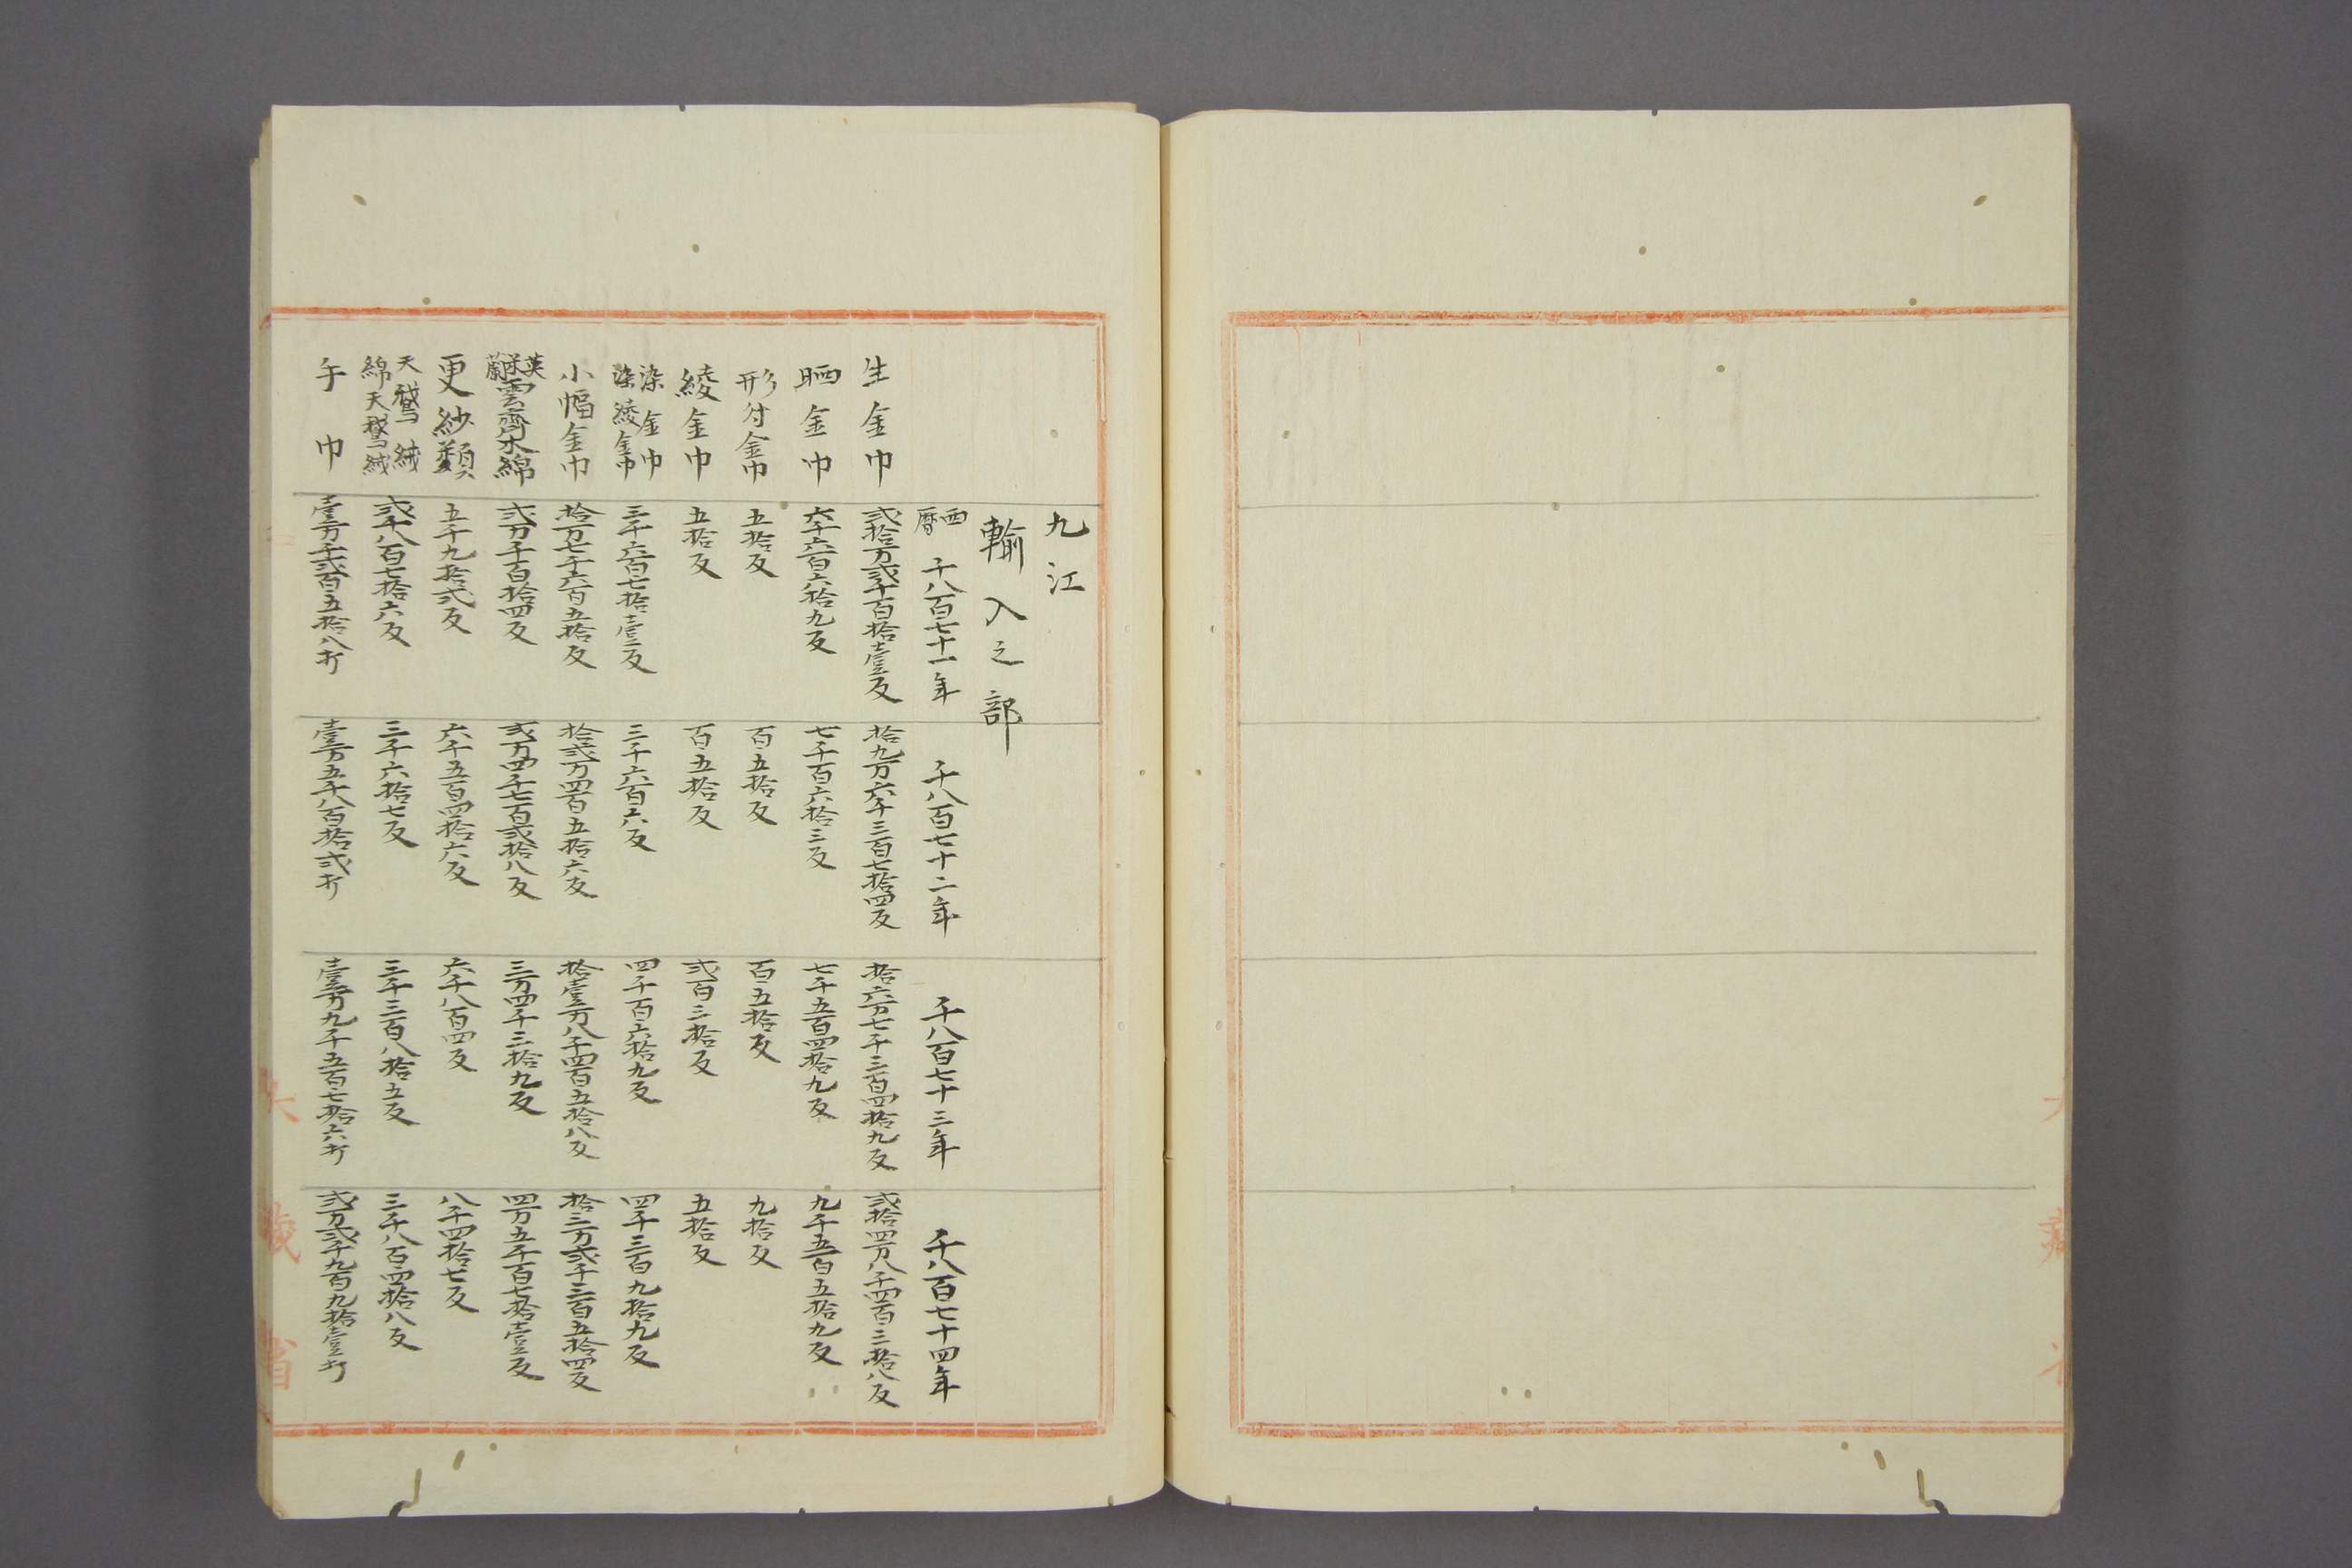 九江
輸入之部
西暦 千八百七十一年 千八百七十二年 千八百七十三年 千八百七十四年
生金巾 弐拾万弐千百拾壹反 拾九万六千三百七拾四反 拾六万七千三百四拾九反 弐拾四万八千四百三拾八反
晒金巾 六千六百六拾九反 七千百六拾三反 七千五百四拾九反 九千五百五拾九反
形付金巾 五拾反 百五拾反 百五拾反 九拾反
綾金巾 五拾反 百五拾反 弐百三拾反 五拾反
染金巾 染綾金巾 三千六百七拾壹反 三千六百六反 四千百六拾九反 四千三百九拾九反
小幅金巾 拾万七千六百五拾反 拾弐万四百五拾六反 拾壹万八千四百五拾八反 拾三万弐千三百五拾四反
英 蘭 雲齊木綿 弐万千百拾四反 弐万四千七百弐拾八反 三万四千三拾九反 四万五千百七拾壹反
更紗類 五千九拾弐反 六千五百四拾六反 六千八百四反 八千四拾七反
天鵞絨 綿天鵞絨 弐千八百七拾六反 三千六拾七反 三千三百八拾五反 三千八百四拾八反
手巾 壹万千弐百五拾八打 壹万五千八百拾弐打 壹万九千五百七拾六打 弐万弐千九百九拾壹打
大藏省